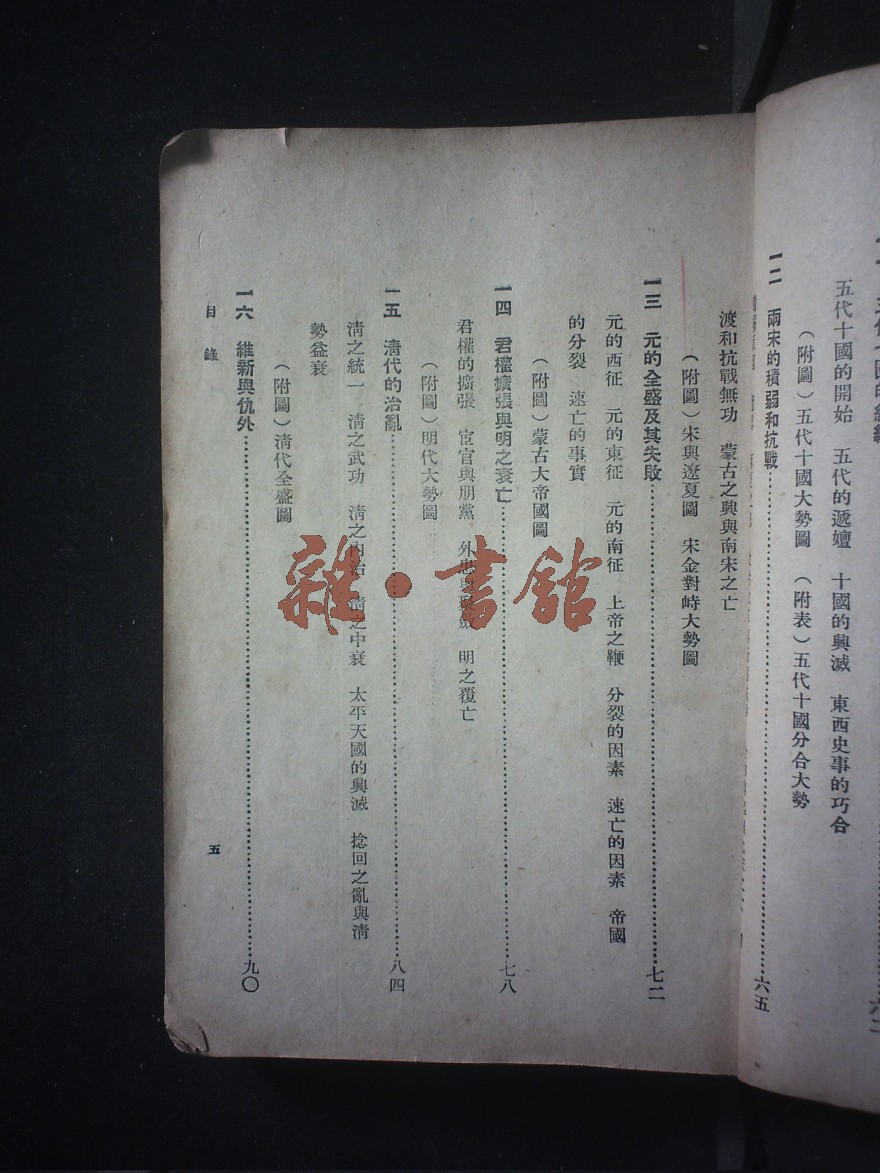 五代十國的開始　五代的遞嬗　十國的興滅　東西史事的巧合
（附圖）五代十國大勢圖　（附表）五代十國分合大勢
一二　兩宋的積弱和抗戰……六五
渡和抗戰無功　蒙古之興與南宋之亡
（附圖）宋與遼夏圖　宋金對峙大勢圖
一三　元的全盛及其失敗……七二
元的西征　元的東征　元的南征　上帝之鞭　分裂的因素　速亡的因素　帝國
的分裂　速亡的事實
（附圖）蒙古大帝國圖
一四　君權擴張與明之衰亡……七八
君權的擴張　宦官與朋黨　外患與　明之覆亡
（附圖）明代大勢圖
一五　清代的治亂……八四
清之統一　清之武功　清之內治　清之中衰　太平天國的興滅　捻回之亂與清
勢益衰
（附圖）清代全盛圖
一六　維新與仇外……九〇
目錄
五
雜·書館